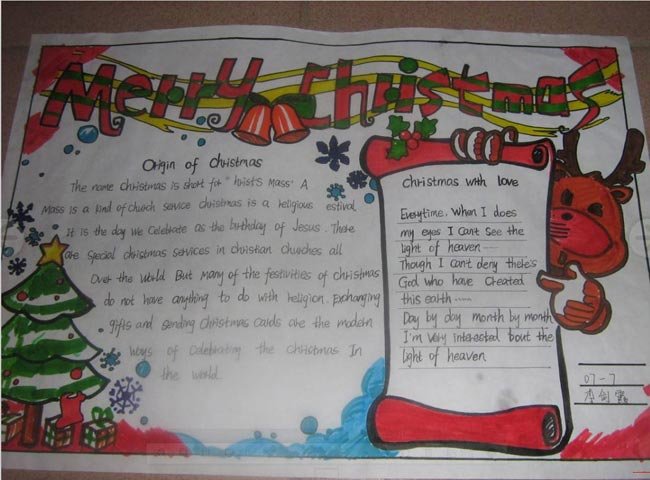 Merry Christmas
Origin of christmas
The name christmas is short for "hrist's Mass". A
Mass is a kind of church service christmas is a religious estival.
It is the day we celebrate as the birthday of Jesus. There
are special christmas services in christian churches all
over the world But many of the festivities of christmas
do not have anything to do with religion. Exchanging
gifts and sending christmas cards are the modern
ways of celebrating the christmas In
the world
Christmas with love
Everytime, When I does
my eyes I can't see the
light of heaven
Though I can't deny there's
God who have created
this earth
Day by day month by month
I'm very interested 'bout the
light of heaven
07-7
李剑霞